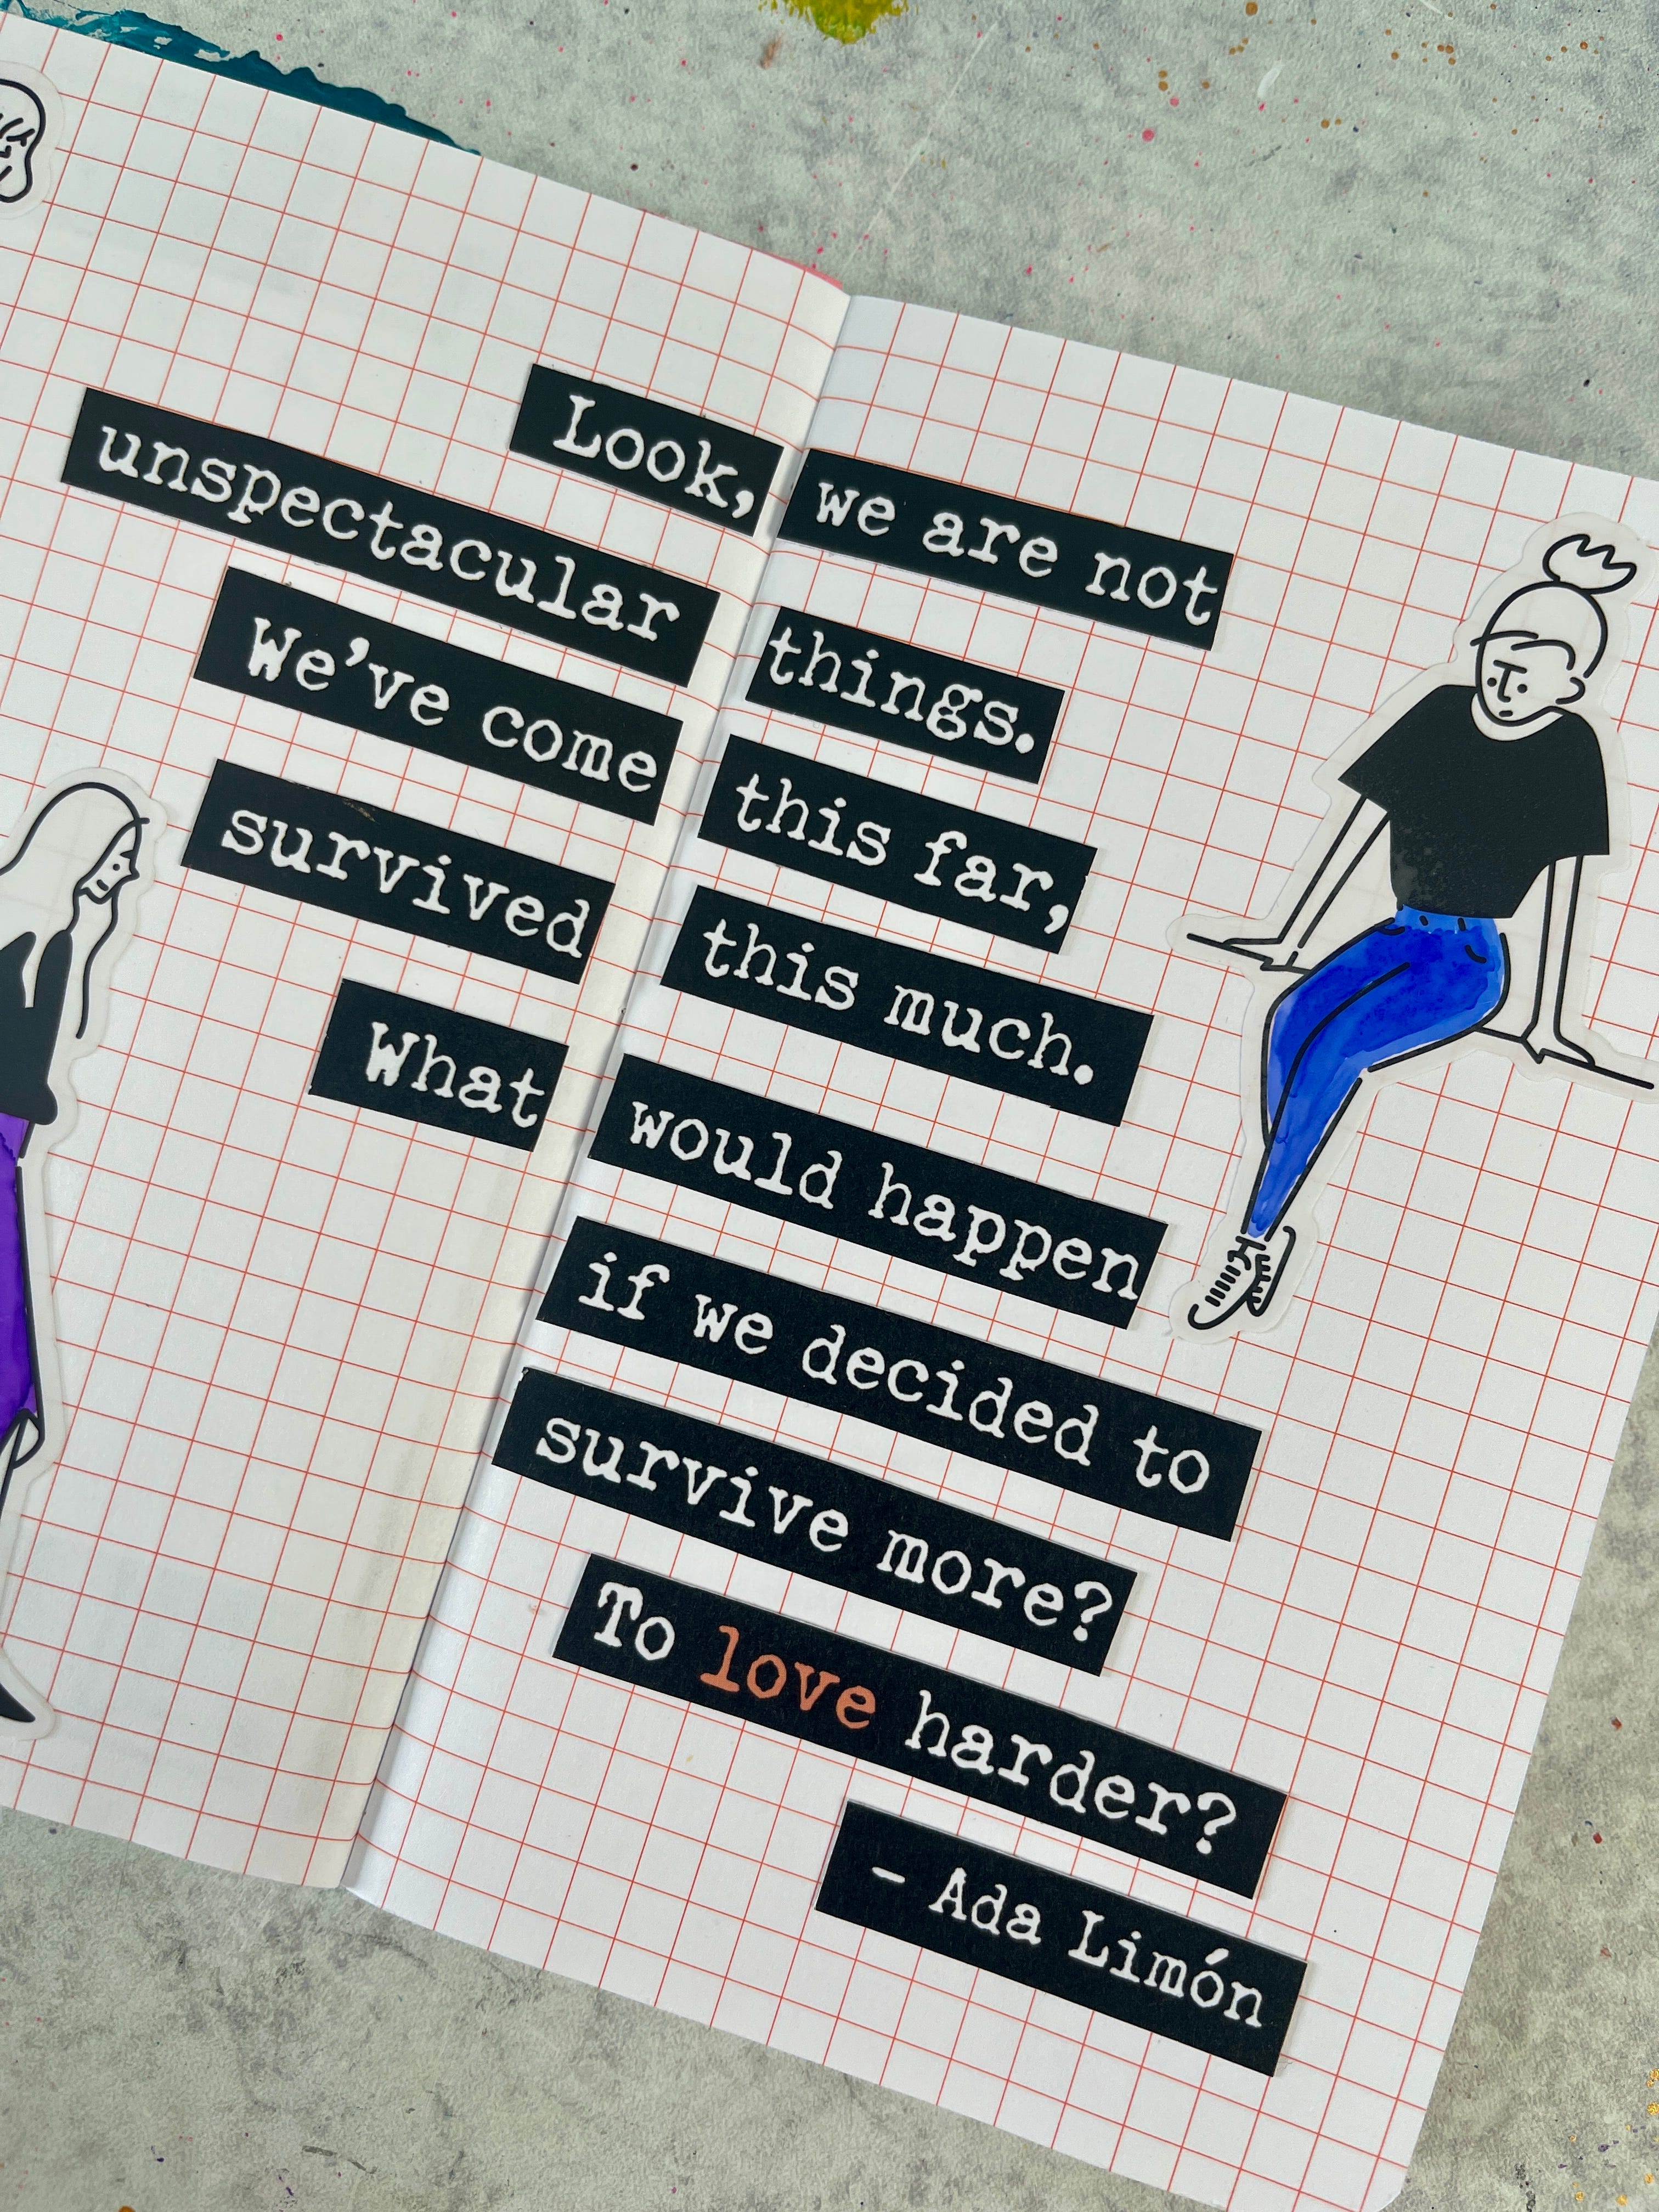 Look, we are not
unspectacular things.
We've come this far,
survived this much.
What would happen
if we decided to
survive more?
To love harder?
- Ada Limón